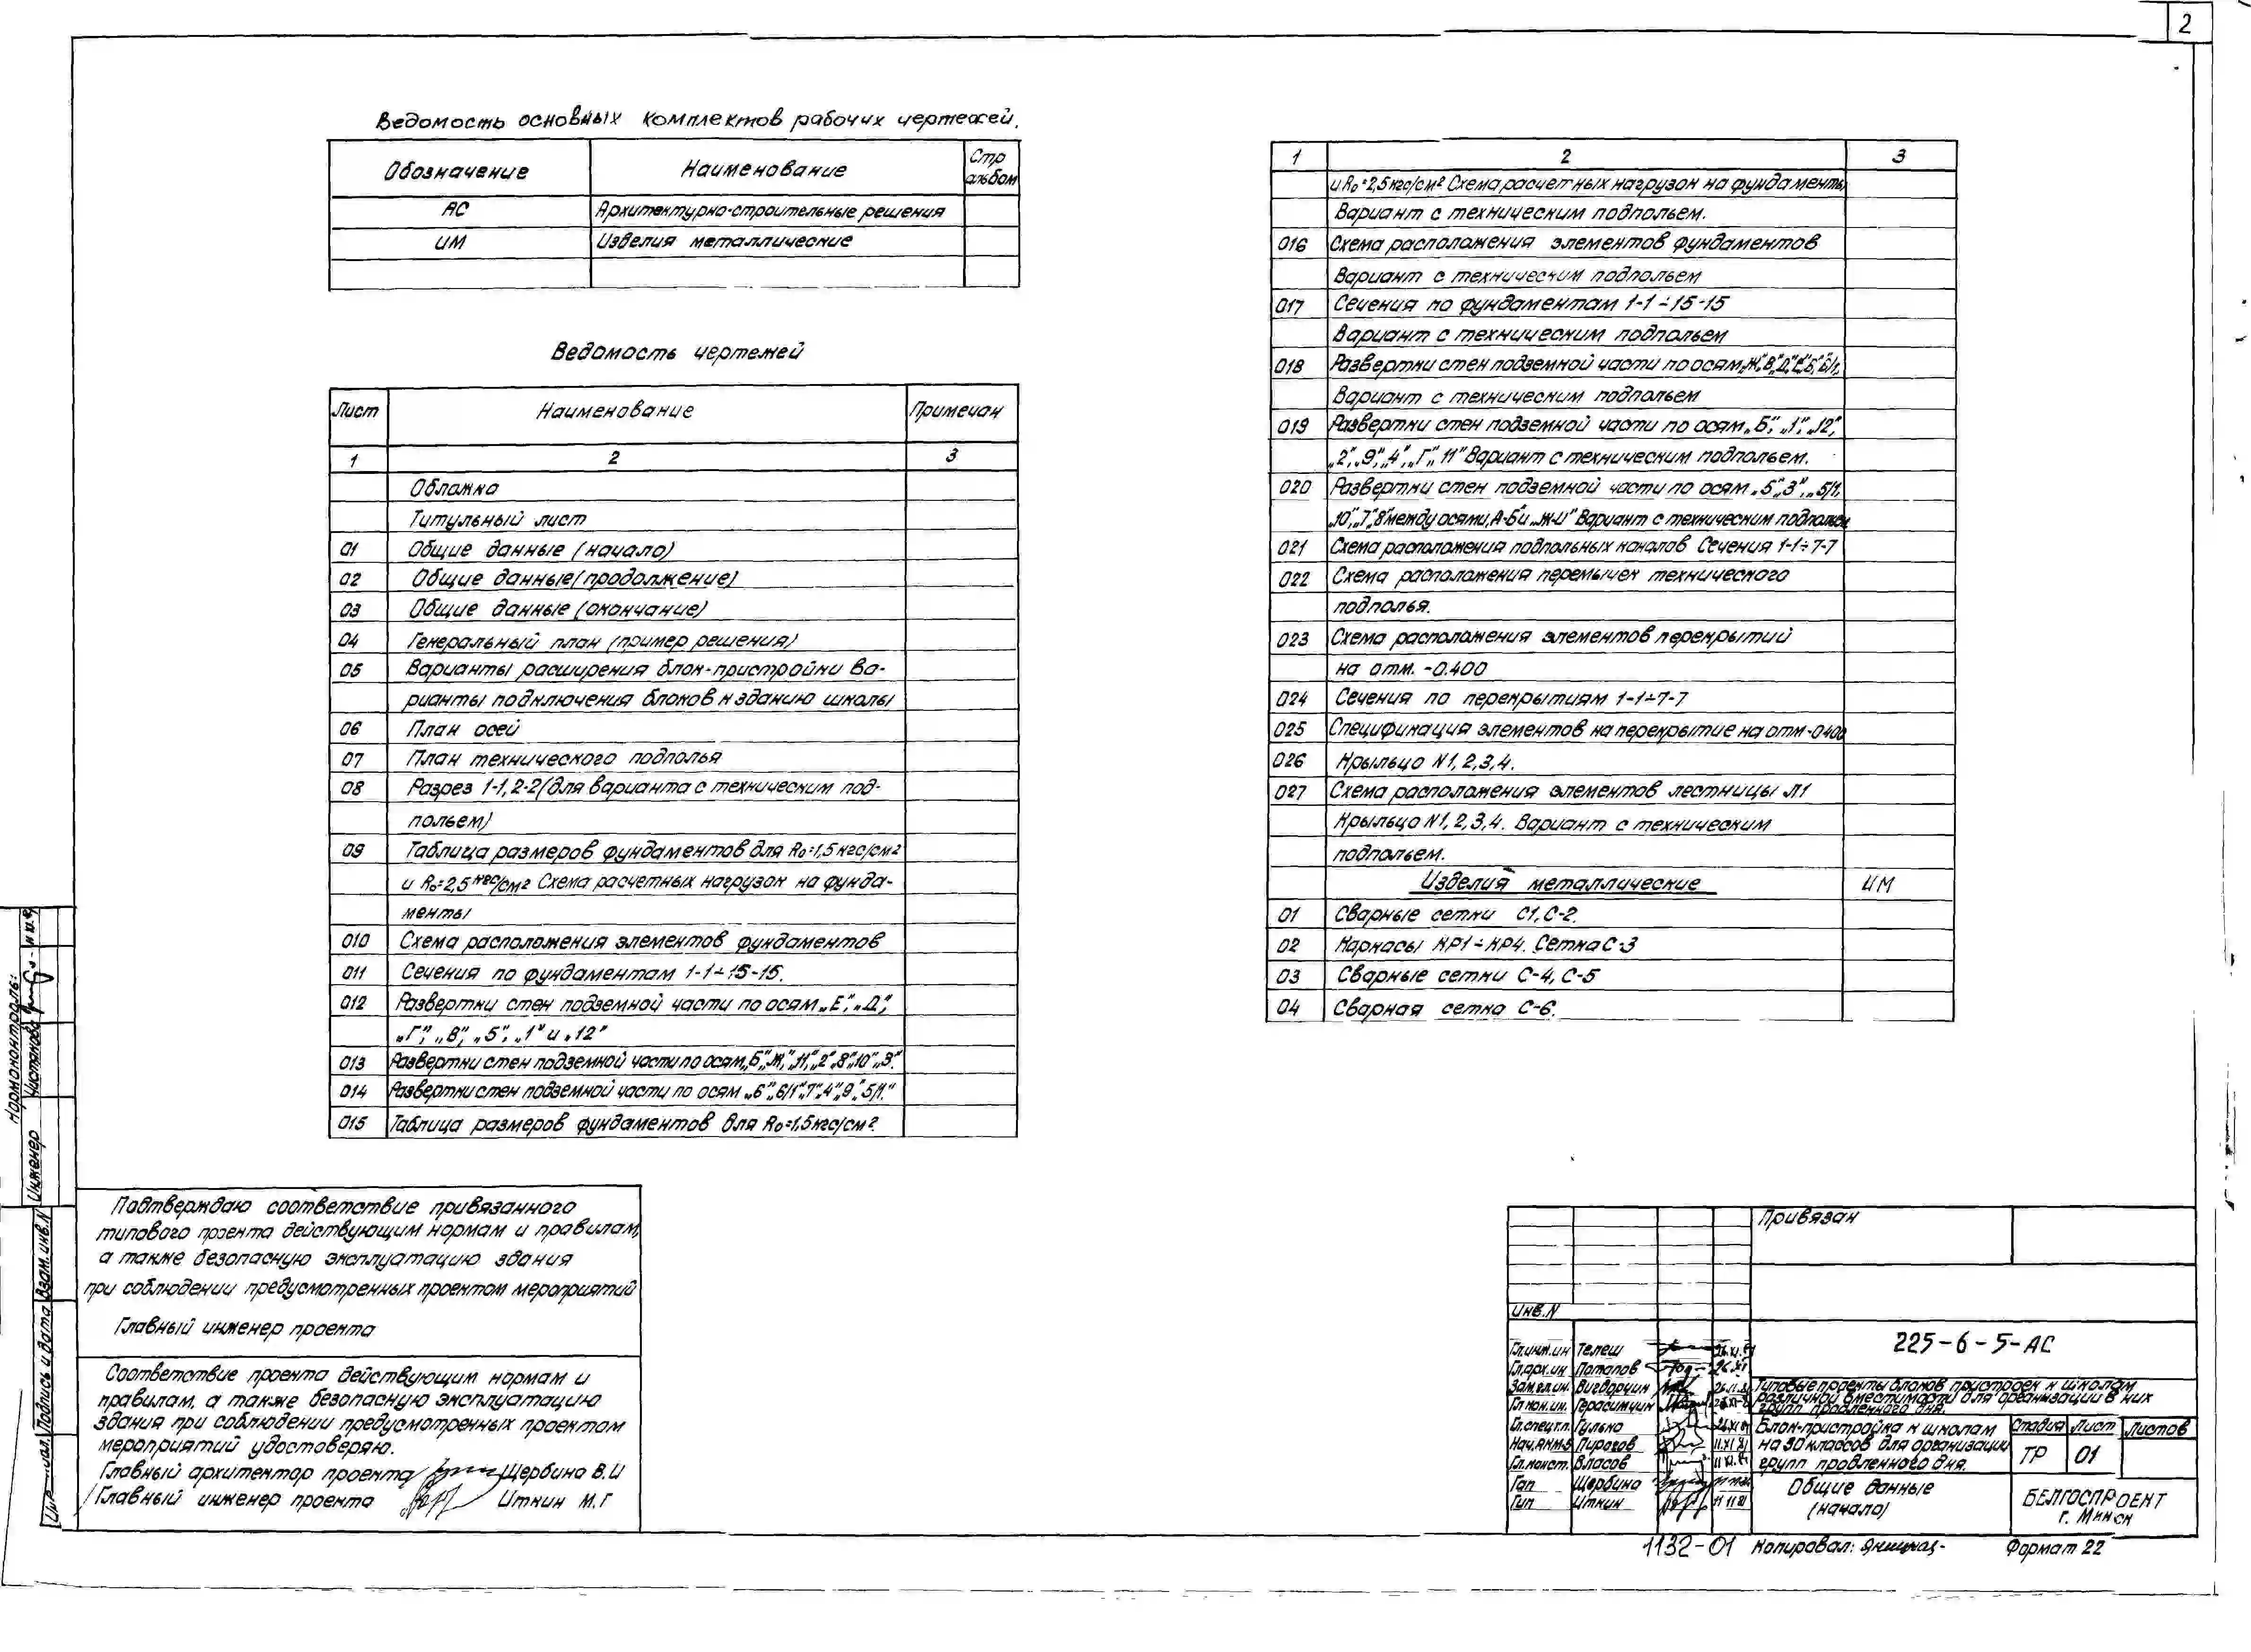 2
Ведомость основных комплектов рабочих чертежей.
Обозначение Наименование Стр альбом
АС Архитектурно-строительные решения
ИМ Изделия металлические
Ведомость чертежей
Лист Наименование Примечан
1 2 3
Обложка
Титульный лист
01 Общие данные (начало)
02 Общие данные (продолжение)
03 Общие данные (окончание)
04 Генеральный план (пример решения)
05 Варианты расширения блок-пристройки Ва-
рианты подключения блоков к зданию школы
06 План осей
07 План технического подполья
08 Разрез 1-1, 2-2 (для варианта с техническим под-
польем)
09 Таблица размеров фундаментов для R₀=1,5 кгс/см²
и R₀=2,5 кгс/см² Схема расчетных нагрузок на фунда-
менты
010 Схема расположения элементов фундаментов
011 Сечения по фундаментам 1-1÷15-15.
012 Развертки стен подземной части по осям „Е", „Д",
„Г", „В", „5", „1" и „12"
013 Развертки стен подземной части по осям „Б", „Ж", „11", „2", „8", „10", „3".
014 Развертки стен подземной части по осям „6", „6/1", „7", „4", „9", „5/1."
015 Таблица размеров фундаментов для R₀=1,5кгс/см².
1 2 3
и R₀=2,5 кгс/см² Схема расчетных нагрузок на фундаменты
Вариант с техническим подпольем.
016 Схема расположения элементов фундаментов
Вариант с техническим подпольем
017 Сечения по фундаментам 1-1÷15-15
Вариант с техническим подпольем
018 Развертки стен подземной части по осям „Ж", „В", „Д",
Вариант с техническим подпольем
019 Развертки стен подземной части по осям „Б", „1", „12",
„2", „9", „4", „Г", „11" Вариант с техническим подпольем.
020 Развертки стен подземной части по осям „5", „3", „5/1,
„10", „7", „8" между осями „А-Б" и „Ж-И" Вариант с техническим подпольем
021 Схема расположения подпольных каналов Сечения 1-1÷7-7
022 Схема расположения перемычек технического
подполья.
023 Схема расположения элементов перекрытий
на отм. -0.400
024 Сечения по перекрытиям 1-1÷7-7
025 Спецификация элементов на перекрытие на отм -0400
026 Крыльцо N1, 2, 3, 4.
027 Схема расположения элементов лестницы Л1
Крыльцо N1, 2, 3, 4. Вариант с техническим
подпольем.
Изделия металлические ИМ
01 Сварные сетки С1, С-2.
02 Каркасы КР1÷КР4. Сетка С-3
03 Сварные сетки С-4, С-5
04 Сварная сетка С-6.
Подтверждаю соответствие привязанного
типового проекта действующим нормам и правилам,
а также безопасную эксплуатацию здания
при соблюдении предусмотренных проектом мероприятий
Главный инженер проекта
Соответствие проекта действующим нормам и
правилам, а также безопасную эксплуатацию
здания при соблюдении предусмотренных проектом
мероприятий удостоверяю.
Главный архитектор проекта Щербина В.И
Главный инженер проекта Иткин М.Г
Нормоконтроль:
Инженер Чистякова
Подпись и дата Взам. инв. N
Привязан
Инв. N
225-6-5-АС
Гл.инж.ин Телеш
Гл.арх.ин Потапов
Зам.гл.ин. Вигдорчик
Гл.кон.ин. Герасимчик
Гл.спец.гл. Гулько
Нач.АКМ-5 Пирогов
Гл.конст. Власов
Гап Щербина
Гип Иткин
Типовые проекты блоков пристроек к школам
различной вместимости для организации в них
групп продленного дня.
Блок-пристройка к школам
на 30 классов для организации
групп продленного дня.
Стадия Лист Листов
ТР 01
Общие данные
(начало)
БЕЛГОСПРОЕКТ
г. Минск
1132-01 Копировал: Формат 22